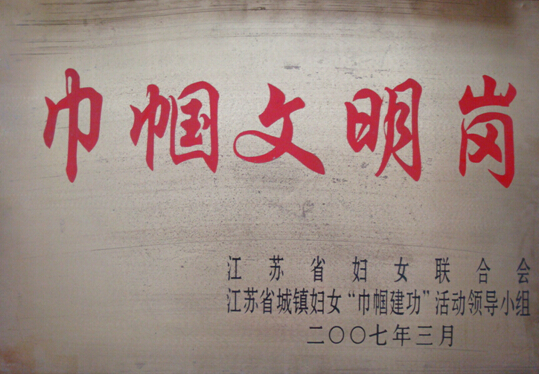 巾帼文明岗
江苏省妇女联合会
江苏省城镇妇女“巾帼建功”活动领导小组
二〇〇七年三月